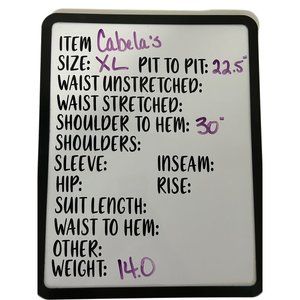 ITEM Cabela's
SIZE: XL PIT TO PIT: 22.5"
WAIST UNSTRETCHED:
WAIST STRETCHED:
SHOULDER TO HEM: 30"
SHOULDERS:
SLEEVE: INSEAM:
HIP: RISE:
SUIT LENGTH:
WAIST TO HEM:
OTHER:
WEIGHT: 14.0